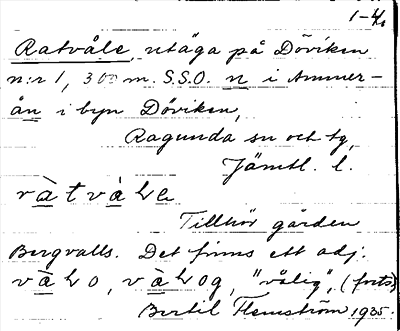 1-4/6
Ratvåle, utäga på Döviken
n:r 1, 300 m. S.S.O. n i Ammer-
ån i byn Döviken,
Ragunda sn och tg,
Jämtl. l.
ràtvàLe
Tillhör gården
Bergvalls. Det finns ett adj.
vàLo, vàLog, "vålig", (forts)
Bertil Flemström 1935.